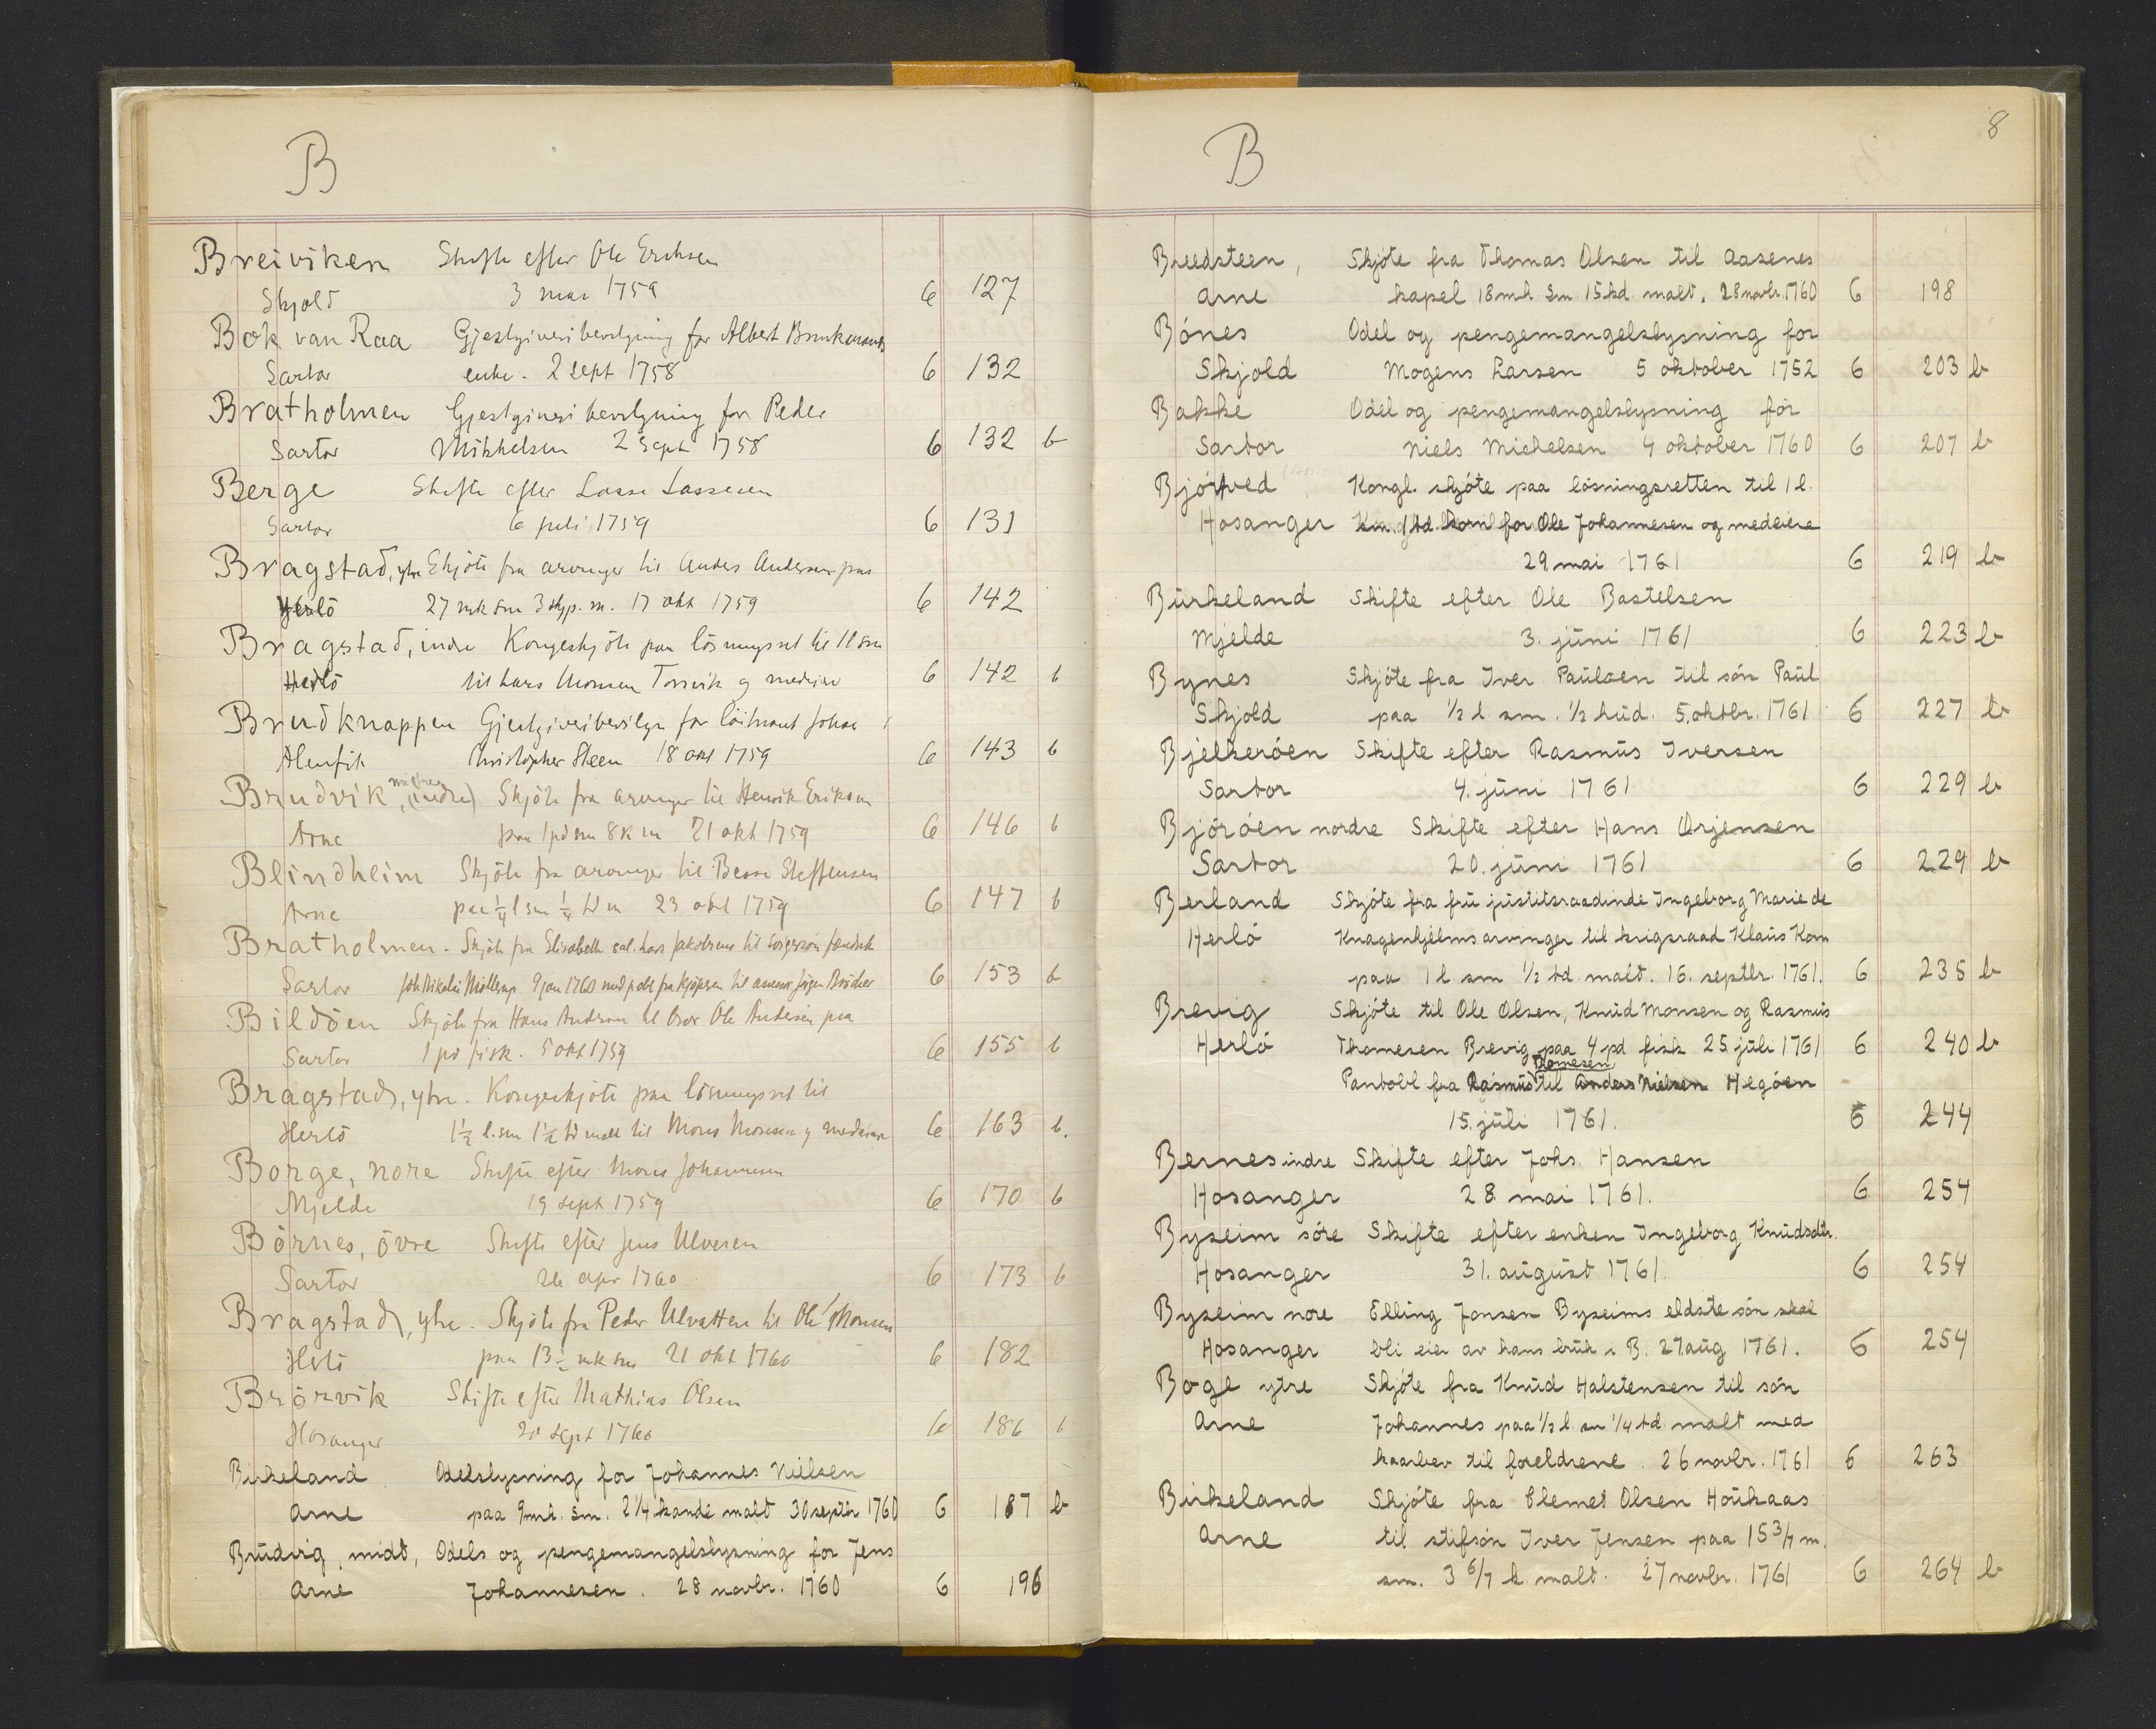 B
Breiviken Skifte efter Ole Erichsen
Skjold 3 mai 1759 6 127
Bok van Raa Gjestgiveribevilgning for Albert Brinkmands
Sartor enke. 2 sept 1758 6 132
Bratholmen Gjestgiveri bevilgning for Peder
Sartor Mikkelsen 2 sept 1758 6 132 b
Berge Skifte efter Lasse Lassesen
Sartor 6 juli 1759 6 131
Bragstad, ytre Skjöte fra arvinger til Anders Andersen paa
Herlö 27 mk sm 3 skjp. m. 17 okt 1759 6 142
Bragstad, indre Kongeskjöte paa lösningsret til 1 l sm
Herlö til Lars Monsen Torsvik og medeiere 6 142 b
Brudknappen Gjestgiveribevilgn for löitnant Johan
Alenfit Christopher Steen 18 okt 1759 6 143 b
Brudvik, midtre (indre) Skjöte fra arvinger til Henrik Eriksen
Arne paa 1 pd sm 8 k m 21 okt 1759 6 146 b
Blindheim Skjöte fra arvinger til Besse Steffensen
Arne paa 1/4 l sm 1/4 td m 23 okt 1759 6 147 b
Bratholmen - Skjöte fra Elisabeth sal. Lars Jakobsens til svigersön fændrik
Sartor Joh Nikolai Möllerup 9 jan 1760 med pobl fra kjöperen til assessor Jörgen Brücher 6 153 b
Bildöen Skjöte fra Hans Andersen til bror Ole Andersen paa
Sartor 1 pd fisk. 5 okt 1759 6 155 b
Bragstad, ytre. Kongeskjöte paa lösningsret til
Herlö 1 1/2 l. sm 1 1/2 td malt til Mons Monsen og medeiere 6 163 b.
Borge, nore Skifte efter Mons Johannesen
Mjelde 19 sept 1759 6 170 b
Börnes, övre Skifte efter Jens Ulvesen
Sartor 26 apr 1760 6 173 b
Bragstad, ytre. Skjöte fra Peder Ulvatten til Ole Monsen
Herlö paa 13 1/2 mk sm 21 okt 1760 6 182
Brörvik Skifte efter Mathias Olsen
Hosanger 20 sept 1760 6 186 b
Birkeland Odelslysning for Johannes Nielsen
Arne paa 9 mk. sm. 2 1/4 kande malt 30 septbr 1760 6 187 b
Brudvig, midt, Odels og pengemangelslysning for Jens
Arne Johannesen. 28 novbr. 1760 6 196
8
B
Breedsteen, Skjöte fra Thomas Olsen til Aasenes
Arne kapel 18 mk sm 15 kd. malt. 28 novbr. 1760 6 198
Bönes Odel og pengemangelslysning for
Skjold Mogens Larsen 5 oktober 1752 6 203 b
Bakke Odel og pengemangelslysning for
Sartor Niels Michelsen 4 oktober 1760 6 207 b
Bjórtved Kongl. skjöte paa lösningsretten til 1 l.
Hosanger sm. 1 td. korn for Ole Johannesen og medeiere
29 mai 1761 6 219 b
Burkeland Skifte efter Ole Bastelsen
Mjelde 3. juni 1761 6 223 b
Bynes Skjöte fra Iver Paulsen til sön Paul
Skjold paa 1/2 l. sm. 1/2 hud. 5. oktbr. 1761 6 227 b
Bjelkeröen Skifte efter Rasmus Iversen
Sartor 4. juni 1761 6 229 b
Björöen nordre Skifte efter Hans Ørjensen
Sartor 20. juni 1761 6 229 b
Berland Skjöte fra fru justitsraadinde Ingeborg Marie de
Herlö Knagenhjelms arvinger til krigsraad Klaus Kom
paa 1 l sm 1/2 td. malt. 16. septbr. 1761. 6 235 b
Brevig Skjöte til Ole Olsen, Knud Monsen og Rasmus
Herlö Thomesen Brevig paa 4 pd fisk 25 juli 1761 6 240 b
Pantobl fra Rasmus Thomesen til Anders Nielsen Hegöen
15. juli 1761. 6 244
Bernes indre Skifte efter Johs. Hansen
Hosanger 28 mai 1761. 6 254
Byseim söre Skifte efter enken Ingeborg Knudsdtr.
Hosanger 31. august 1761. 6 254
Byseim nore Elling Jonsen Byseims eldste sön skal
Hosanger bli eier av hans bruk i B. 27 aug 1761. 6 254
Boge ytre Skjöte fra Knud Halstensen til sön
Arne Johannes paa 1/2 l. sm 1/4 td. malt med
kaarbrev til foreldrene. 26 novbr. 1761 6 263
Birkeland Skjöte fra Clemet Olsen Houkaas
Arne til stifsön Iver Jensen paa 15 3/7 m.
sm. 3 6/7 k. malt. 27 novbr. 1761 6 264 b